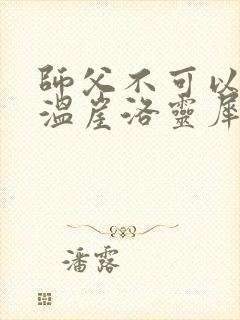 師父不可以
溫崖洛靈犀
潘露